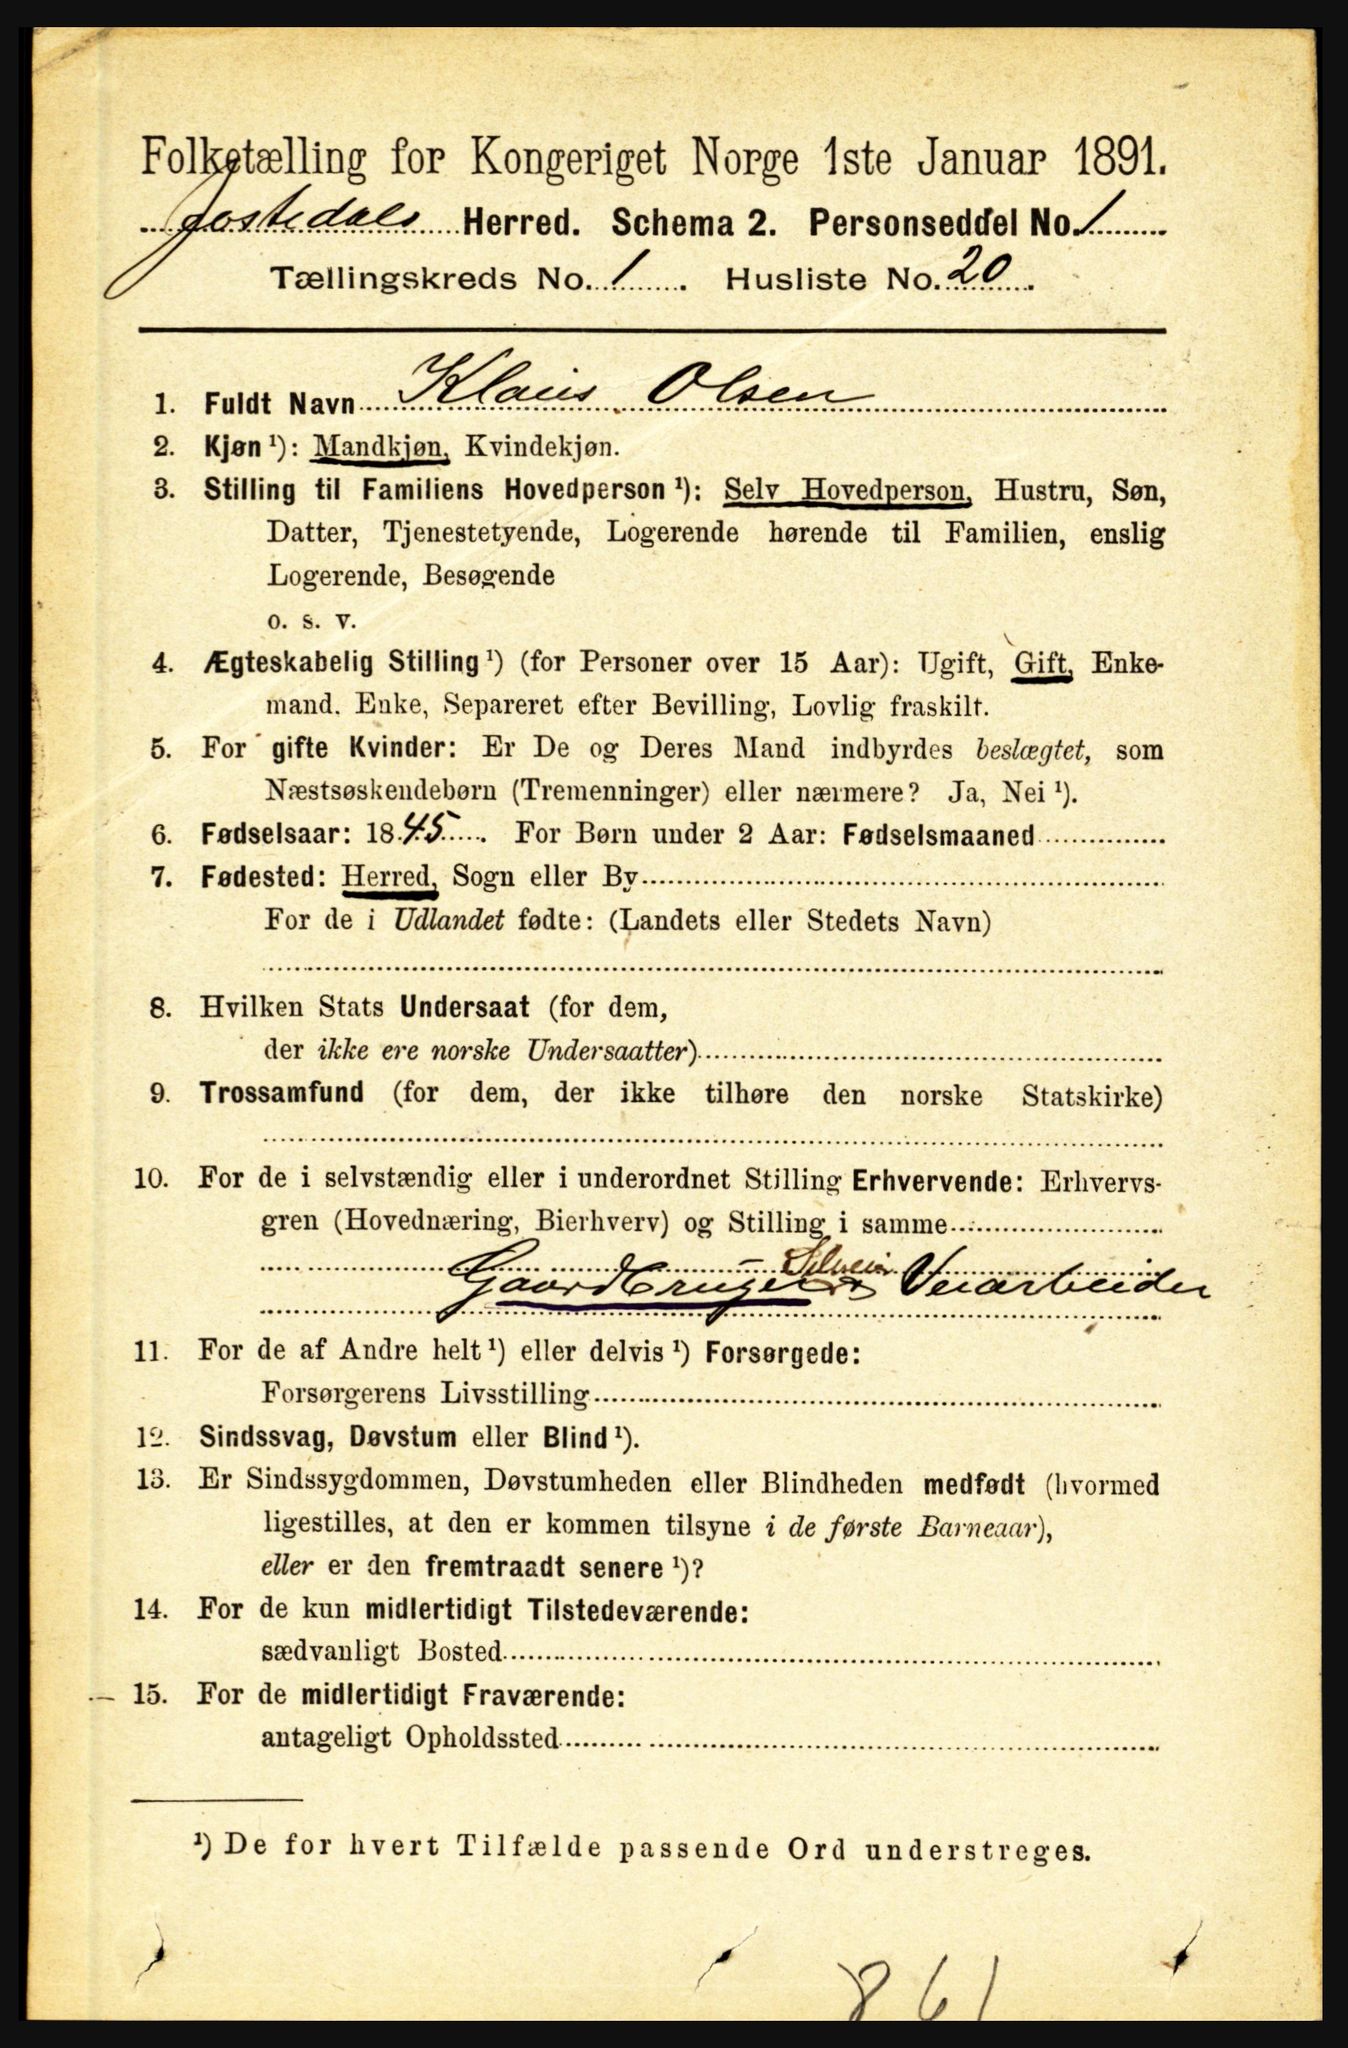 Folketælling for Kongeriget Norge 1ste Januar 1891.
Jostedals Herred. Schema 2. Personseddel No. 1
Tællingskreds No. 1. Husliste No. 20.
1. Fuldt Navn Klaus Olsen
2. Kjøn ¹): Mandkjøn, Kvindekjøn.
3. Stilling til Familiens Hovedperson ¹): Selv Hovedperson, Hustru, Søn,
Datter, Tjenestetyende, Logerende hørende til Familien, enslig
Logerende, Besøgende
o. s. v.
4. Ægteskabelig Stilling ¹) (for Personer over 15 Aar): Ugift, Gift, Enke-
mand, Enke, Separeret efter Bevilling, Lovlig fraskilt.
5. For gifte Kvinder: Er De og Deres Mand indbyrdes beslægtet, som
Næstsøskendebørn (Tremenninger) eller nærmere? Ja, Nei ¹).
6. Fødselsaar: 1845. For Børn under 2 Aar: Fødselsmaaned
7. Fødested: Herred, Sogn eller By
For de i Udlandet fødte: (Landets eller Stedets Navn)
8. Hvilken Stats Undersaat (for dem,
der ikke ere norske Undersaatter)
9. Trossamfund (for dem, der ikke tilhøre den norske Statskirke)
10. For de i selvstændig eller i underordnet Stilling Erhvervende: Erhvervs-
gren (Hovednæring, Bierhverv) og Stilling i samme
Selveier
Gaardbruger Veiarbeider
11. For de af Andre helt ¹) eller delvis ¹) Forsørgede:
Forsørgerens Livsstilling
12. Sindssvag, Døvstum eller Blind ¹).
13. Er Sindssygdommen, Døvstumheden eller Blindheden medfødt (hvormed
ligestilles, at den er kommen tilsyne i de første Barneaar),
eller er den fremtraadt senere ¹)?
14. For de kun midlertidigt Tilstedeværende:
sædvanligt Bosted
15. For de midlertidigt Fraværende:
antageligt Opholdssted
¹) De for hvert Tilfælde passende Ord understreges.
861